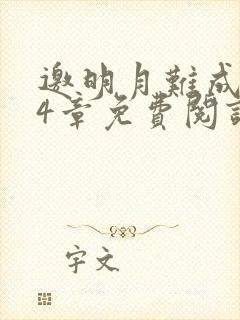 邀明月難成
4章免費閱讀
宇文